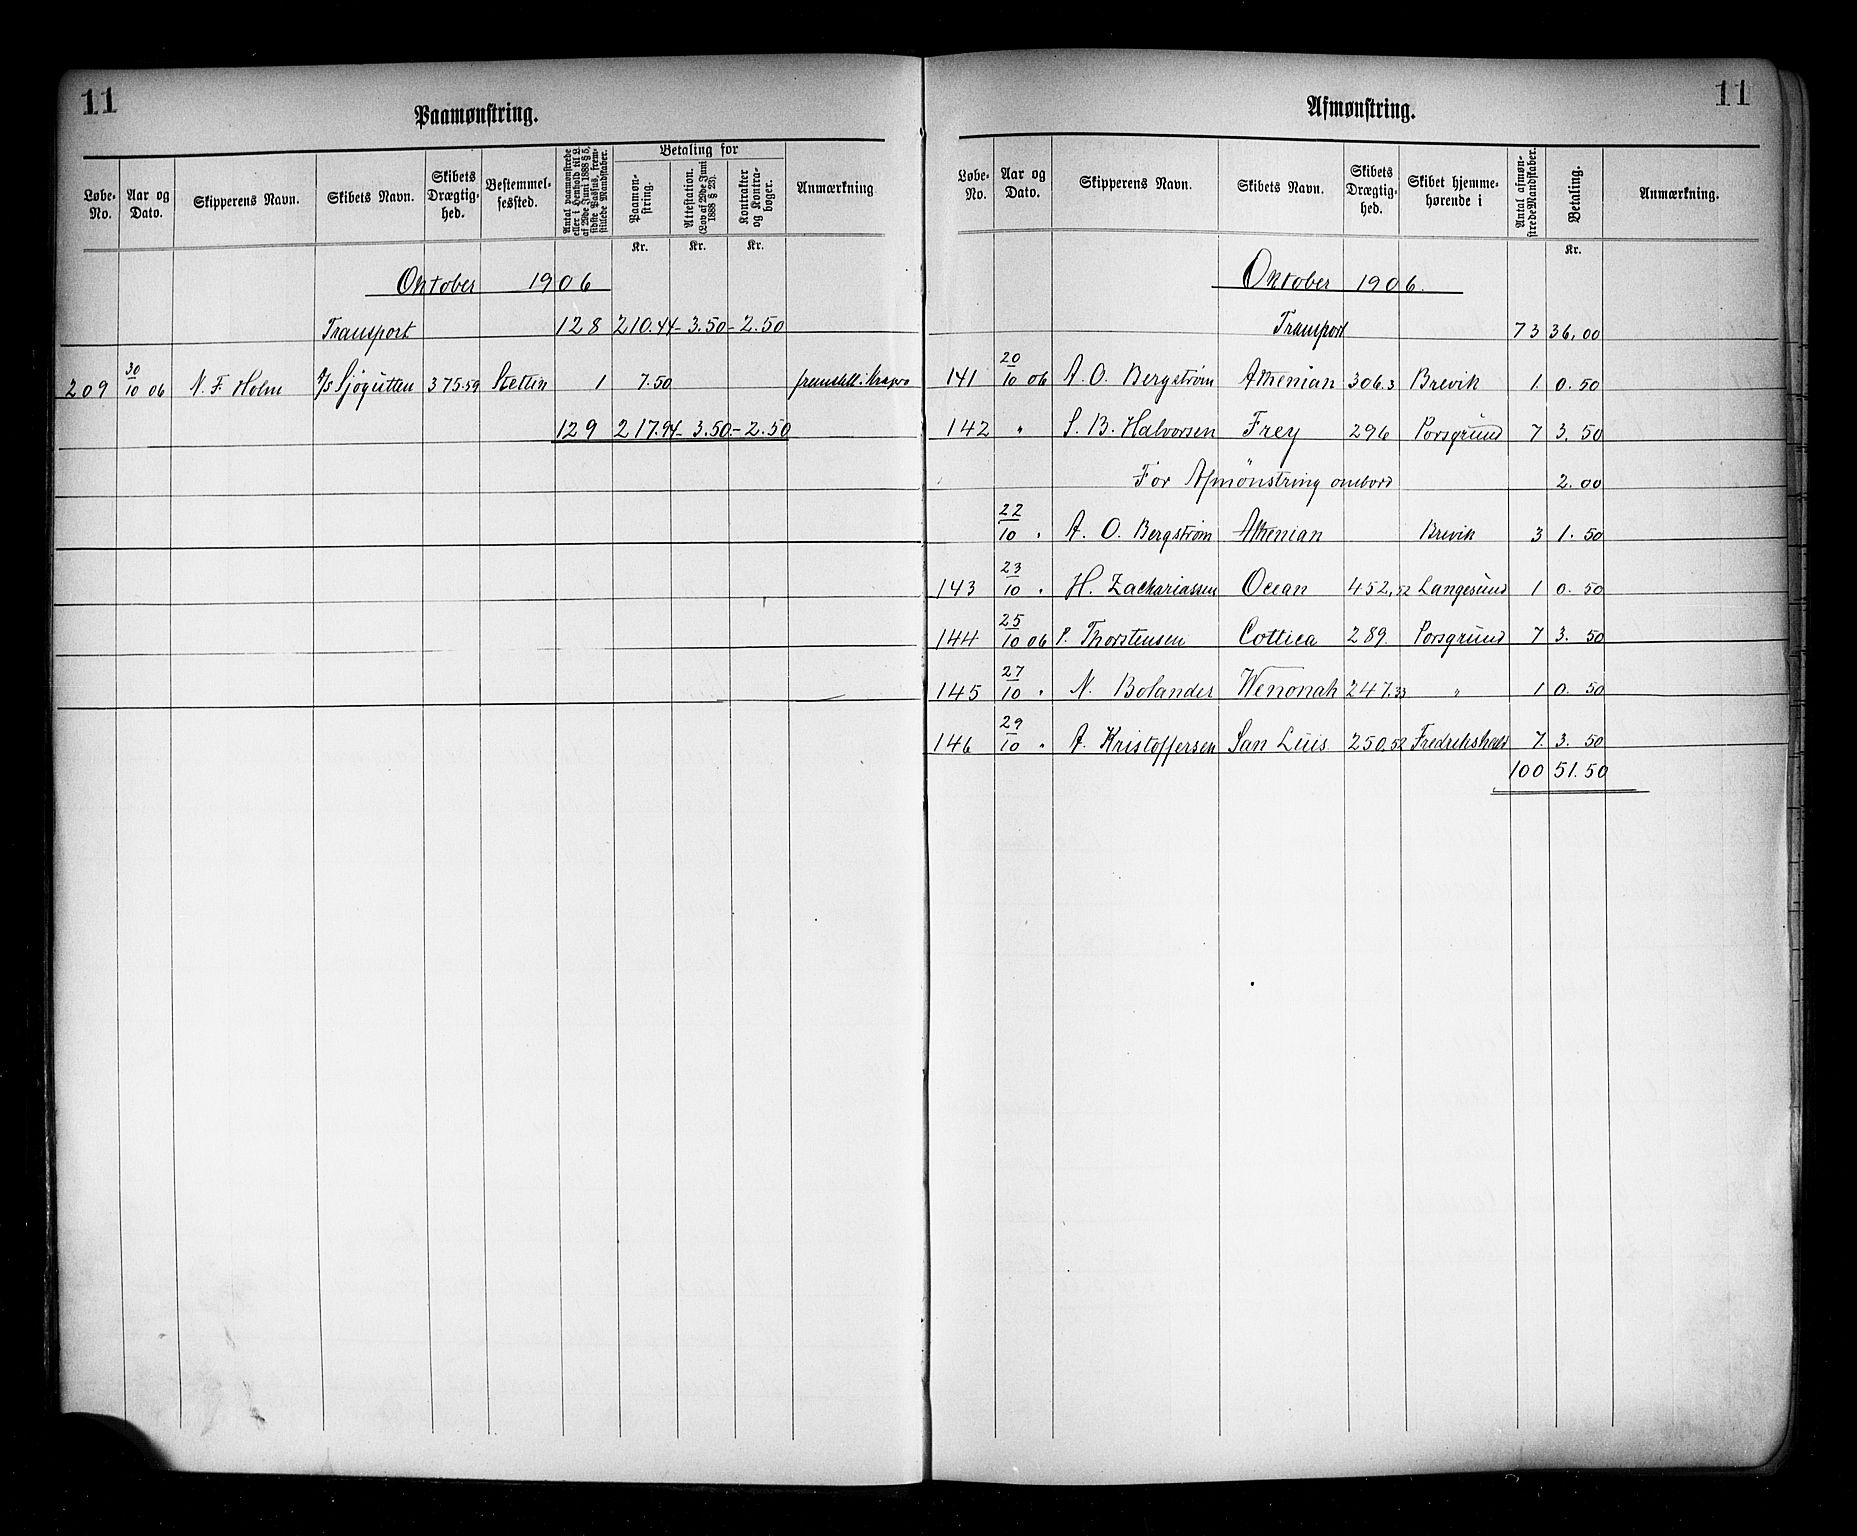 11
Paamønstring.
Løbe-No. | Aar og Dato. | Skipperens Navn. | Skibets Navn. | Skibets Drægtig-hed. | Bestemmel-sessted. | Antal paamønstrede eller i Henhold til L. af 29de Juni 1888 § 5, sidste Passus, frem-stillede Mandskaber. | Betaling for | Paamøn-string. | Attestation. (Lov af 29de Juni 1888 § 23). | Kontrakter og Kontra-bøger. | Anmærkning
Kr. | Kr. | Kr.
Oktober 1906
Transport | 128 | 210.44 - | 3.50 - | 2.50
209 | 30/10 06 | N. F. Holm | Sjøgutten | 375.59 | Stettin | 1 | 7.50 | fremstill.
129 | 217.94 - | 3.50 - | 2.50
11
Afmønstring.
Løbe-No. | Aar og Dato. | Skipperens Navn. | Skibets Navn. | Skibets Drægtig-hed. | Skibet hjemme-hørende i | Antal afmøn-strede Mandskaber. | Betaling. | Anmærkning.
Kr.
Oktober 1906.
Transport | 73 | 36,00
141 | 20/10 06 | A. O. Bergstrøm | Athenian | 306.3 | Brevik | 1. | 0.50
142 | " | S. B. Halvorsen | Frey | 296 | Porsgrund | 7 | 3.50
For Afmönstring ombord | 2.00
22/10 " | A. O. Bergstrøm | Athenian | Brevik | 3 | 1.50
143 | 23/10 " | H. Zachariassen | Ocean | 452,52 | Langesund | 1 | 0.50
144 | 25/10 06 | P. Thorstensen | Cottica | 289. | Porsgrund | 7 | 3.50
145 | 27/10 " | N. Bolander | Wenonah | 247.33 | " | 1 | 0.50
146 | 29/10 " | A. Kristoffersen | San Luis | 250.52 | Fredrikshald | 7. | 3.50
100 | 51.50